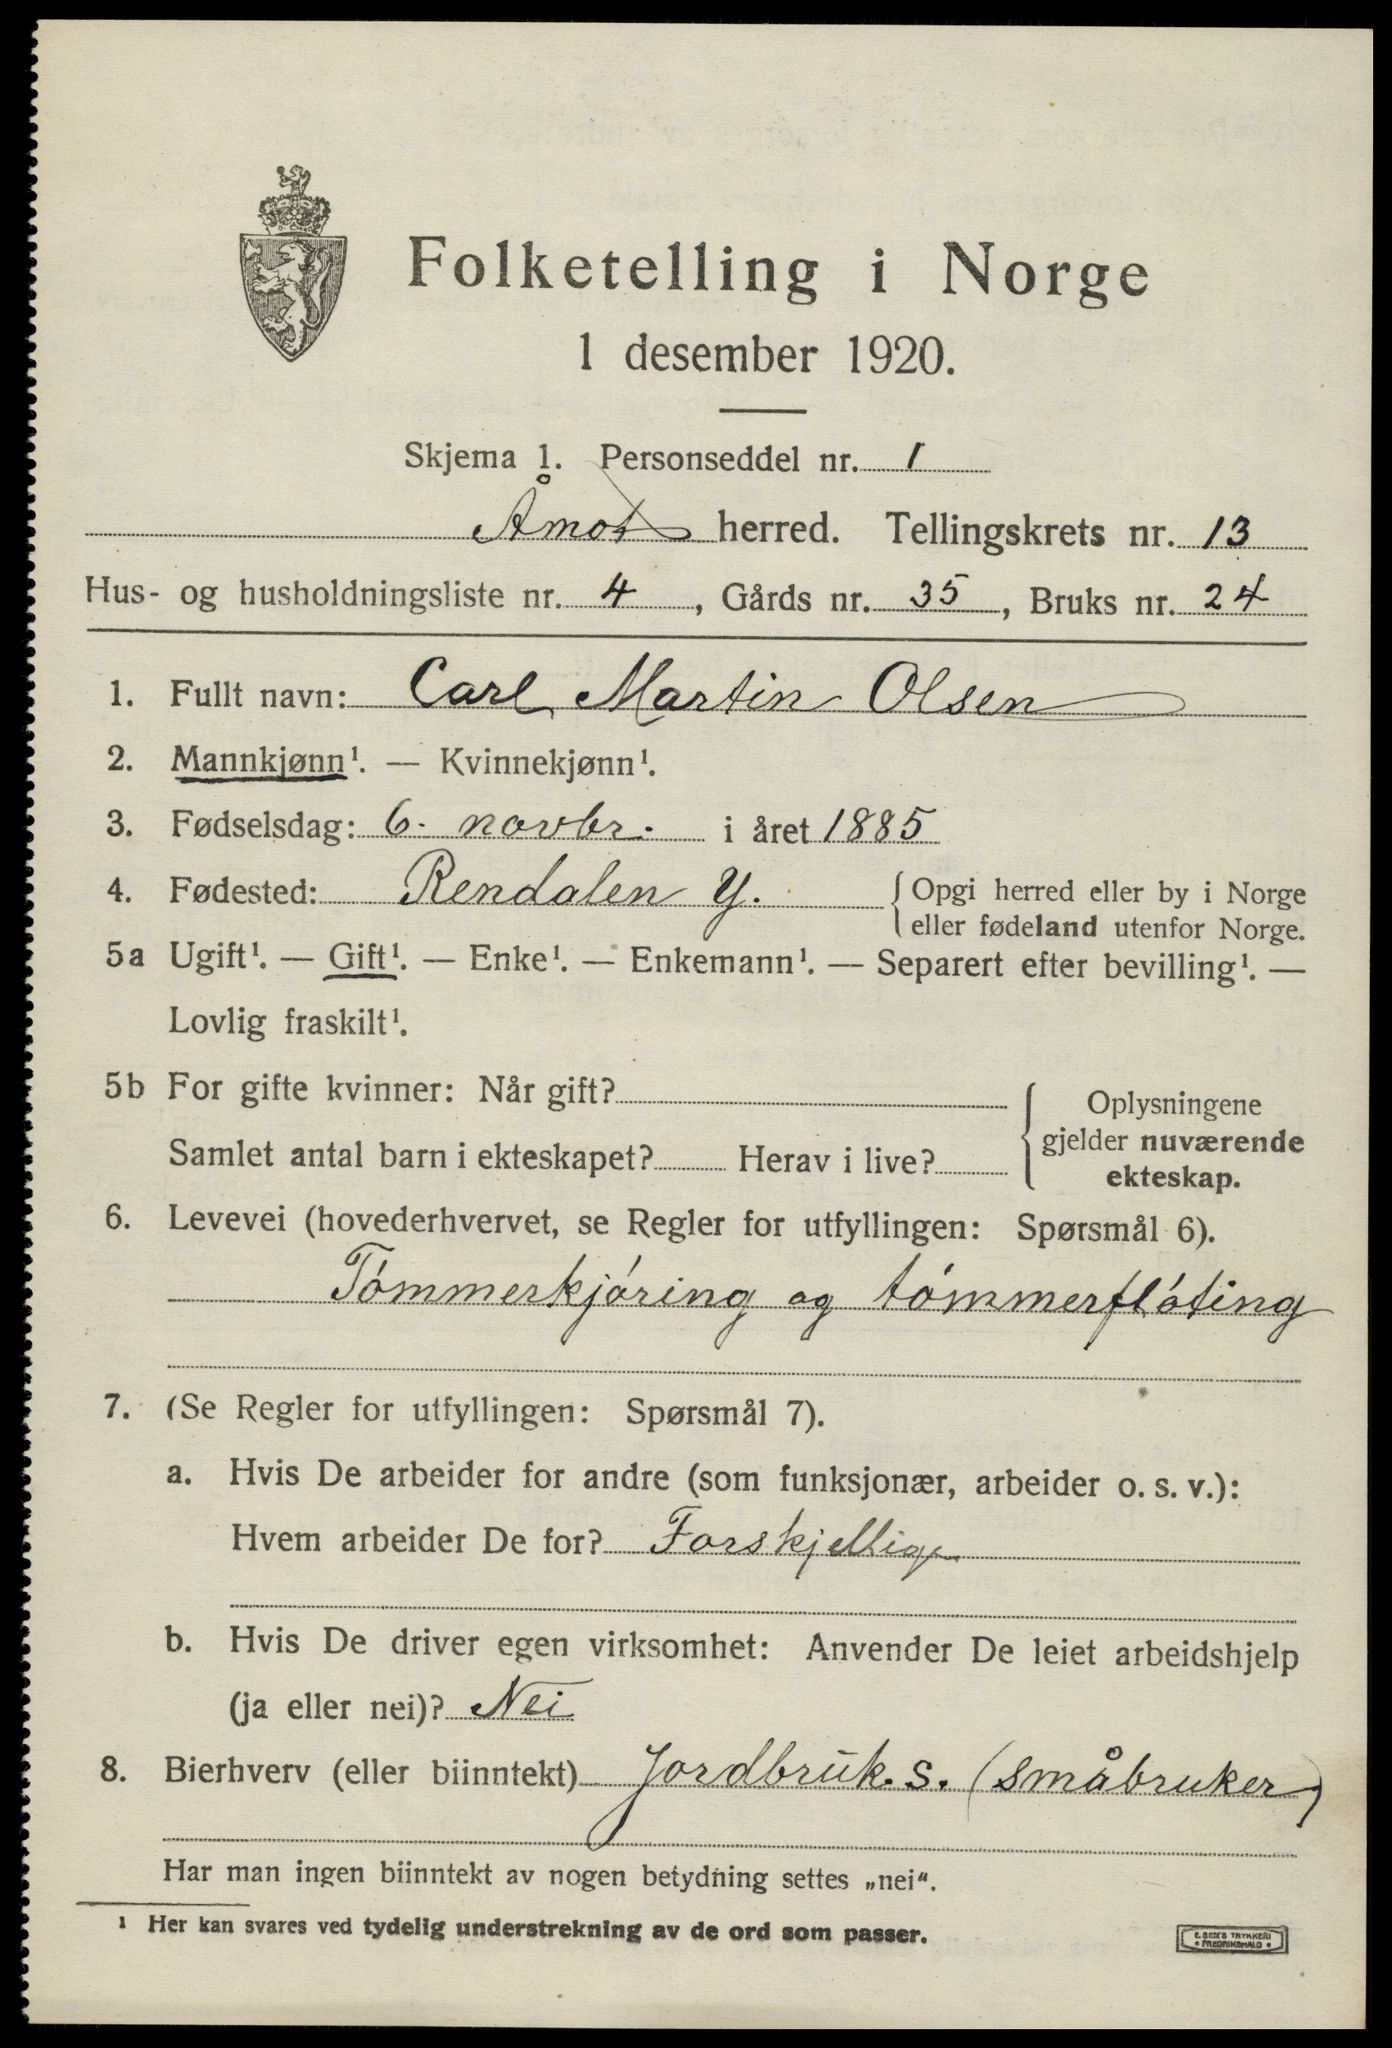 Folketelling i Norge
1 desember 1920.
Skjema 1. Personseddel nr. 1
Åmot herred. Tellingskrets nr. 13
Hus- og husholdningsliste nr. 4, Gårds nr. 35, Bruks nr. 24
1. Fullt navn: Carl Martin Olsen
2. Mannkjønn¹. — Kvinnekjønn¹.
3. Fødselsdag: 6. novbr. i året 1885
4. Fødested: Rendalen Y. Opgi herred eller by i Norge
eller fødeland utenfor Norge.
5a Ugift¹. — Gift¹. — Enke¹. — Enkemann¹. — Separert efter bevilling¹. —
Lovlig fraskilt¹.
5b For gifte kvinner: Når gift?
Samlet antal barn i ekteskapet? Herav i live?
Oplysningene
gjelder nuværende
ekteskap.
6. Levevei (hovederhvervet, se Regler for utfyllingen: Spørsmål 6).
Tómmerkjóring og tómmerflóting
7. (Se Regler for utfyllingen: Spørsmål 7).
a. Hvis De arbeider for andre (som funksjonær, arbeider o. s. v.):
Hvem arbeider De for? Forskjellige
b. Hvis De driver egen virksomhet: Anvender De leiet arbeidshjelp
(ja eller nei)? Nei
8. Bierhverv (eller biinntekt) Jordbruk. s. (småbruker)
Har man ingen biinntekt av nogen betydning settes „nei".
¹ Her kan svares ved tydelig understrekning av de ord som passer.
E. SEM'S TRYKKERI
• FREDRIKSHALD •